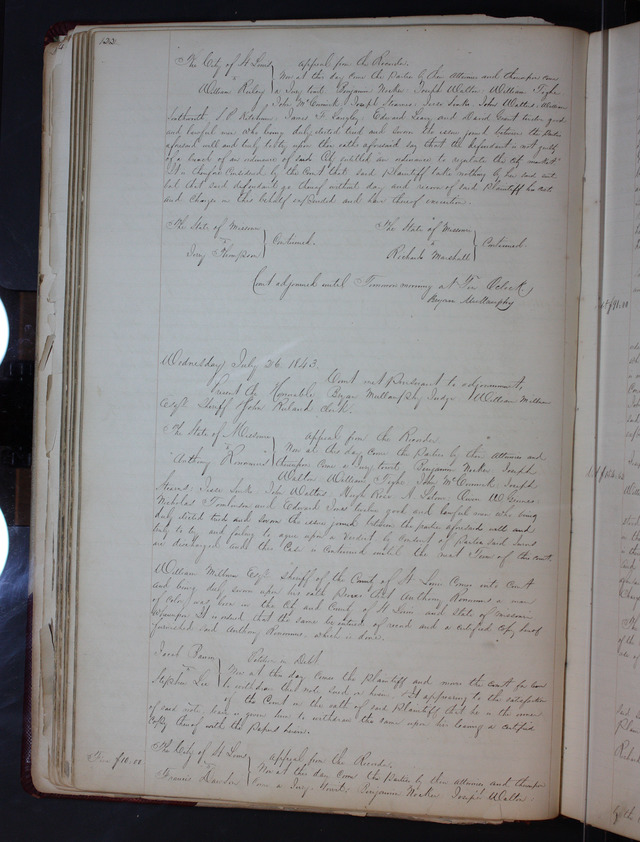 The City of St Louis
vs
William Risley
Appeal from the Recorder.
Now at this day come the Parties by their attornies and thereupon came
a Jury towit Benjamin Nocker, Joseph Walter, William Tighe
John McCormick, Joseph Stearns, Jesse Sinks, John Walter, William
S. P. Ketchum, James T. Langley, Edward and David Grant twelve good
and lawful men who being duly elected tried and sworn the issue joined between the Parties
aforesaid well and truly to try upon their oaths aforesaid say that the defendant is not guilty
of a breach of an ordinance of said City entitled an ordinance to regulate the City markets
It is therefore Considered by the Court that said Plaintiff take nothing by his said suit
but that said defendant go thereof without day and recover of said Plaintiff his costs
and Charges in this behalf expended and have thereof execution.
The State of Missouri
vs
Jerry Thompson
Continued.
The State of Missouri
vs
Richard Marshall
Continued
Court adjourned until Tomorrow morning at Ten Oclock
Bryan Mullanphy
Wednesday July 26 1843.
Court met Pursuant to adjournment,
Present the Honorable Bryan Mullanphy Judge William Milburn
Esqr Sheriff John Ruland clerk.
The State of Missouri
vs
Anthony Bonaume
Appeal from the Recorder
Now at this day come the Parties by their Attornies and
thereupon Came a Jury towit, Benjamin Nocker Joseph
Walter William Tighe John McCormick Joseph
Stearns Jesse Sinks John Walter Hugh Rose A Salmon Owen McGinnis
Nicholas Tomlinson and Edward twelve good and lawful men who being
duly elected tried and sworn the issue joined between the parties aforesaid well and
truly to try and failing to agree upon a Verdict by consent of Parties said Jurors
are discharged and this Case is continued until the next Term of this court.
William Milburn Esqr Sheriff of the County of St Louis Comes into Court
and being duly sworn upon his oath Proves that Anthony Bonaume a man
of Color was born in the City and County of St Louis and State of Missouri
Whereupon It is ordered that the same be entered of record and a certified copy thereof
furnished said Anthony Bonaume which is done.
Jacob
vs
Stephen Lee
Petition in Debt
Now at this day comes the Plaintiff and moves the court for leave
to withdraw the note sued on herein & it appearing to the satisfaction
of the Court on the oath of said Plaintiff that he is the owner
of said note, leave is given him to withdraw the same upon his leaving a certified
Copy thereof with the Papers herein.
Fine $10.00
The City of St Louis
vs
Francis
Appeal from the Recorder
Now at this day come the Parties by their attornies and thereupon
Came a Jury towit, Benjamin Nocker Joseph Walter